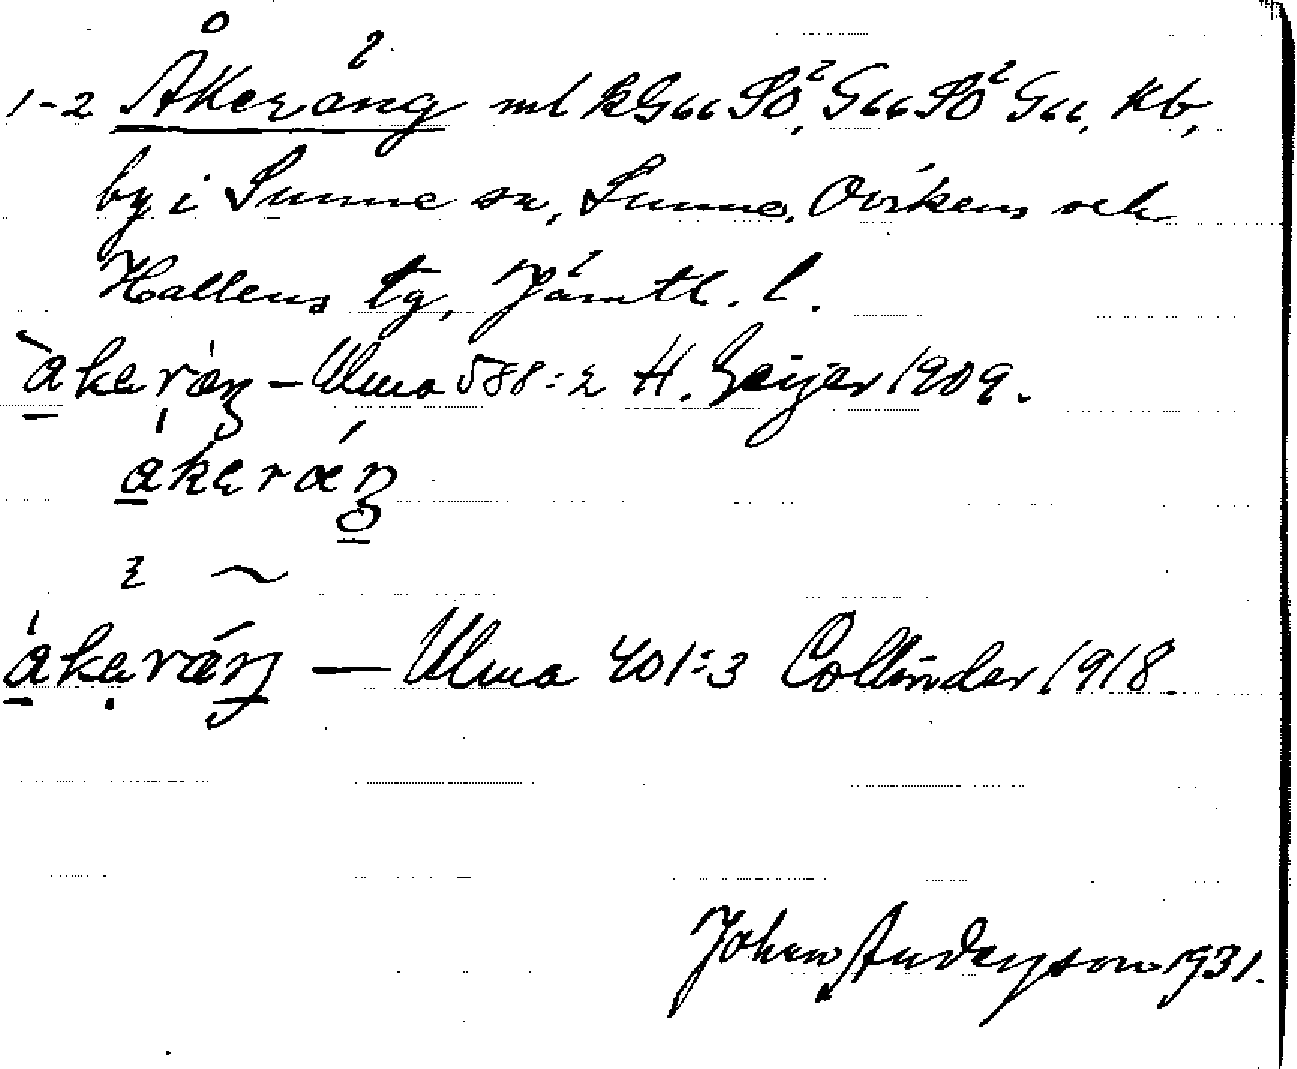 1-2 Åkeräng ml kG66 Sö², G66 Sö² G66, Kb,
by i Sunne sn, Sunne, Ovikens och
Hallens tg, Jämtl. l.
åkeräŋ – Ulma 588:2 H. Geijer 1909.
åkeräŋ
åkeräŋ — Ulma 401:3 Collinder 1918.
Johan Anderson 1931.